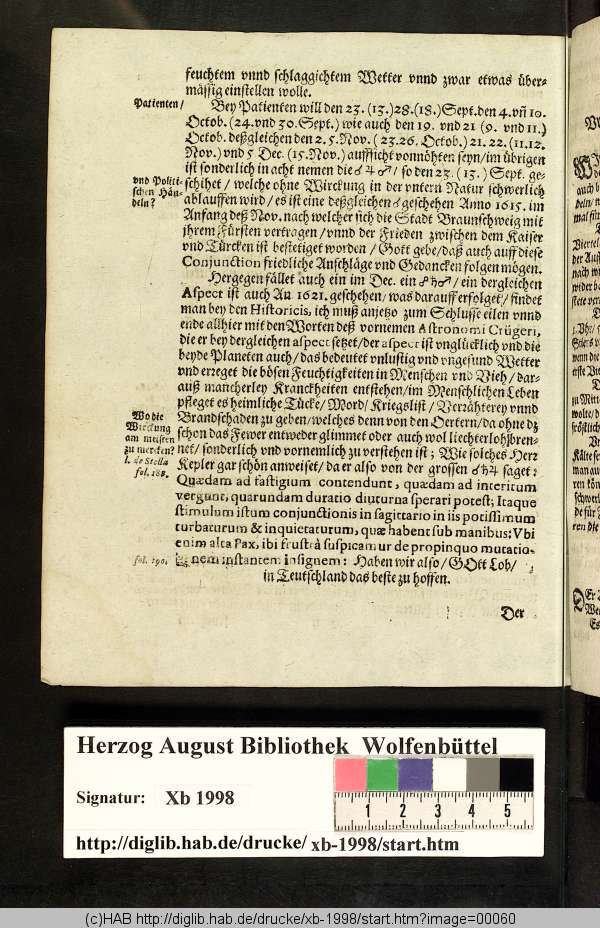 feuchtem vnnd schlaggichtem Wetter vnnd zwar etwas über-
mässig einstellen wolle.
Patienten/
Bey Patienten will den 23. (13.) 28. (18.) Sept. den 4. vñ 10.
Octob. (24. vnd 30. Sept.) wie auch den 19. vnd 21 (9. vnd 11.)
Octob. deßgleichen den 2. 5. Nov. (23. 26. Octob.) 21. 22. (11. 12.
Nov.) vnd 5 Dec. (15. Nov.) auffsicht vonnöhten seyn/ im übrigen
ist sonderlich in acht nemen die ☌ ♃ ♂/ so den 23. (13.) Sept. ge-
vnd Politi-
schen Hän-
deln?
schihet/ welche ohne Wirckung in der vntern Natur schwerlich
ablauffen wird/ es ist eine deßgleichen ☌ geschehen Anno 1615. im
Anfang deß Nov. nach welcher sich die Stadt Braunschweig mit
jhrem Fürsten vertragen/ vnnd der Frieden zwischen dem Kaiser
vnd Türcken ist bestetiget worden/ Gott gebe/ daß auch auff diese
Conjunction friedliche Anschläge vnd Gedancken folgen mögen.
Hergegen fället auch ein im Dec. ein ☍ ♄ ♂/ ein dergleichen
Aspect ist auch An 1621. geschehen/ was darauff erfolget/ findet
man bey den Historicis, ich muß anjetzo zum Schlusse eilen vnnd
ende allhier mit den Worten deß vornemen Astronomi Crügeri,
die er bey dergleichen aspect setzet/ der aspect ist vnglücklich vnd die
beyde Planeten auch/ das bedeutet vnlustig vnd vngesund Wetter
vnd erreget die bösen Feuchtigkeiten in Menschen vnd Vieh/ dar-
auß mancherley Kranckheiten entstehen/ im Menschlichen Leben
pfleget es heimliche Tücke/ Mord/ Kriegslist/ Verrähterey vnnd
Wo die
Wirckung
am meisten
zu mercken?
l. de Stella
fol. 188.
Brandschaden zu geben/ welches denn von den Oertern/ da ohne dz
schon das Fewer entweder glimmet oder auch wol liechterloh bren-
net/ sonderlich vnd vornemlich zu verstehen ist; Wie solches Herr
Kepler gar schön anweiset/ da er also von der grossen ☌ ♄ ♃ saget:
Quædam ad fastigium contendunt, quædam ad interitum
vergunt, quarundam duratio diuturna sperari potest; Itaque
stimulum istum conjunctionis in sagittario in iis potissimum
turbaturum & inquietaturum, quæ habent sub manibus: Vbi
enim alta Pax, ibi frustrà suspicamur de propinquo mutatio-
fol. 190.
nem instantem insignem: Haben wir also/ GOtt Lob/
in Teutschland das beste zu hoffen.
Der
Herzog August Bibliothek Wolfenbüttel
Signatur: Xb 1998
1 2 3 4 5
http://diglib.hab.de/drucke/ xb-1998/start.htm
(c)HAB http://diglib.hab.de/drucke/xb-1998/start.htm?image=00060